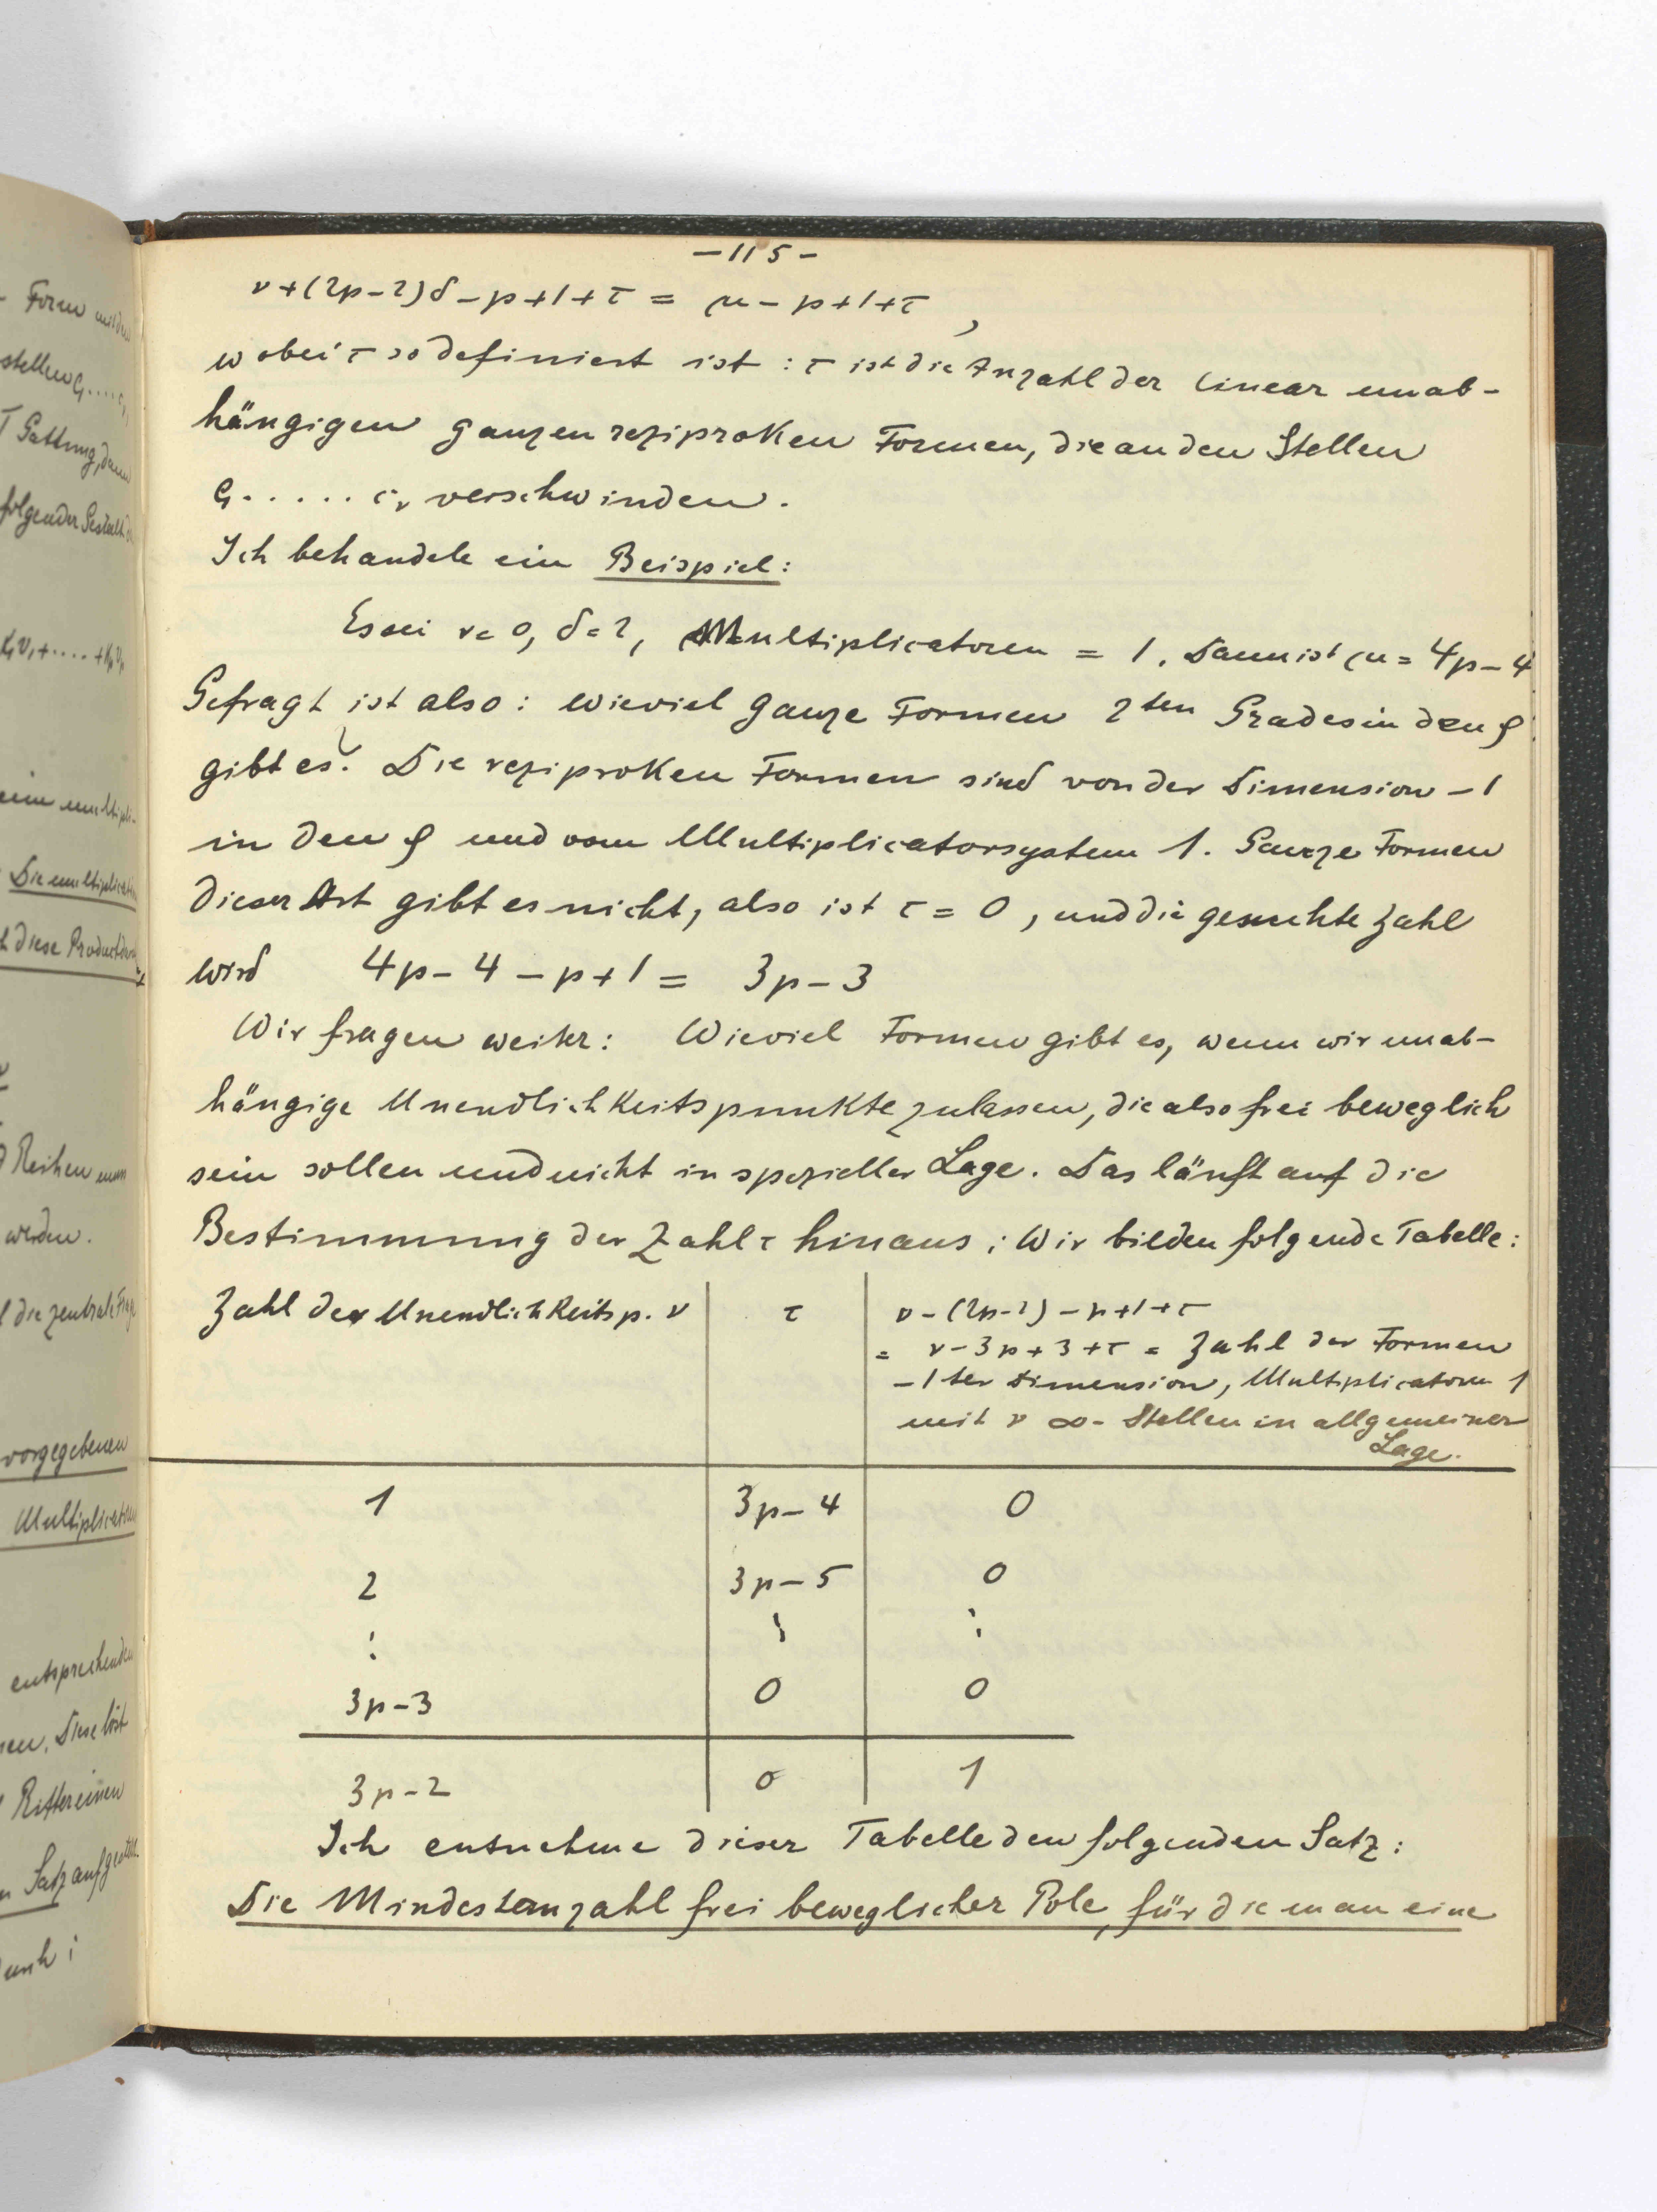 - Form mit den
stellen c₁....c
Gattung, dann
folgender Gestalt
eine multipli-
Die multiplicati
diese Product
Reihen
werden.
die zentrale Frag
vorgegebenen
Multiplicatoren
entsprechenden
Diese löst
Ritter einen
Satz aufgestellt.
durch i
-115-
ν+(2p-2)δ-p+1+τ = μ-p+1+τ,
wobei τ so definiert ist: τ ist die Anzahl der linear unab-
hängigen ganzen reziproken Formen, die an den Stellen
c₁.....cᵥ verschwinden.
Ich behandele ein Beispiel:
Es sei ν=0, δ=2, Multiplicatoren = 1. Dann ist μ=4p-4
Gefragt ist also: wieviel ganze Formen 2ten Grades in den φ
gibt es? Die reziproken Formen sind von der Dimension -1
in den φ und vom Multiplicatorsystem 1. Ganze Formen
dieser Art gibt es nicht, also ist τ=0, und die gesuchte Zahl
wird 4p-4-p+1 = 3p-3
Wir fragen weiter: Wieviel Formen gibt es, wenn wir unab-
hängige Unendlichkeitspunkte zulassen, die also frei beweglich
sein sollen und nicht in spezieller Lage. Das läuft auf die
Bestimmung der Zahl τ hinaus; Wir bilden folgende Tabelle:
Zahl der Unendlichkeitsp. ν τ ν-(2p-2)-p+1+τ
= ν-3p+3+τ = Zahl der Formen
-1ter Dimension, Multiplicatoren 1
mit ν ∞-Stellen in allgemeiner
Lage.
1 3p-4 0
2 3p-5 0
⋮ ⋮ ⋮
3p-3 0 0
3p-2 0 1
Ich entnehme dieser Tabelle den folgenden Satz:
Die Mindestanzahl frei beweglicher Pole, für die man eine